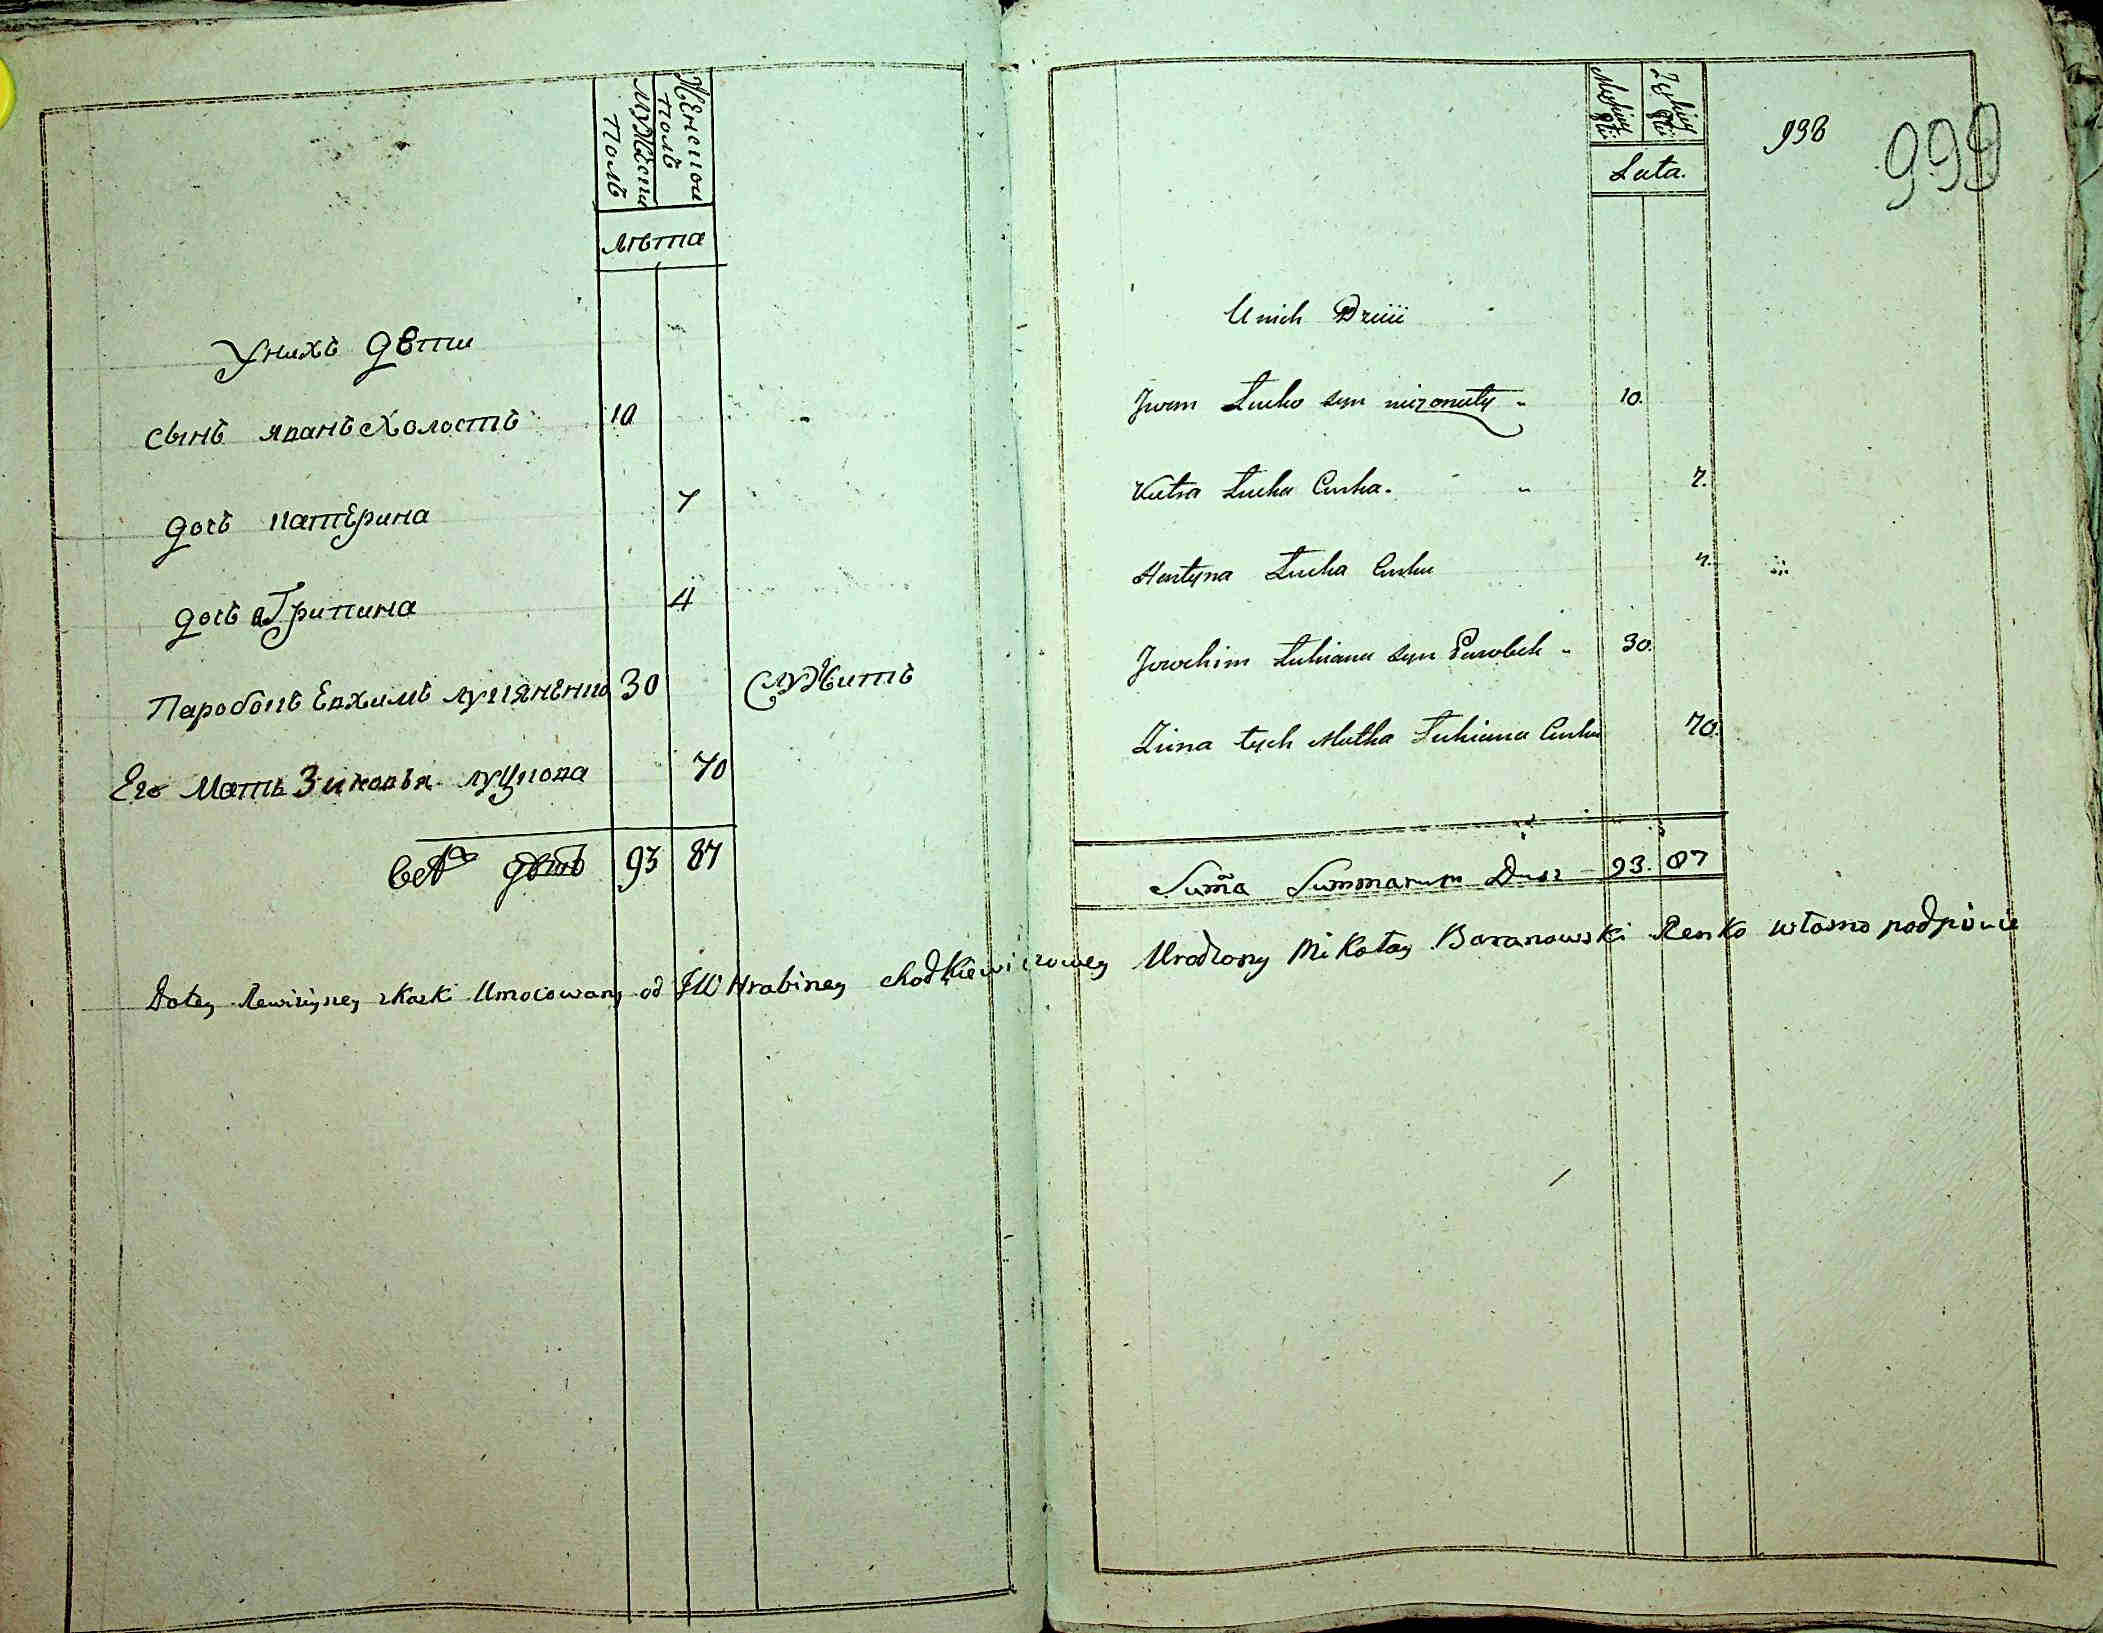 Женской Полъ
Мужеской Полъ
Лѣта
У нихъ дѣти
Сынъ Иванъ Холостъ 10
дочь Катерина 7
дочь агрипина 4
Паробокъ Евхимъ лукяненко 30 служитъ
Его Мать Зиновья луцкова 70
93 87
938
999
Męskiey Płci
Żeńskiey Płci
Lata.
U nich Dzieci
Jwan Łucko syn nieżonaty 10.
Łucka Curka. 7.
Hortyna Łucka Curka 4.
Jowchim Łukiana syn Parobek 30.
Zina tych Matka Łukiana Curka 70.
Suma Summarum Dusz 93. 87
Dotey Rewizyney skaski Umocowany od JW Hrabiney chodkiewiczowey Urodzony Mikołay Baranowski Renko własno podpisuie